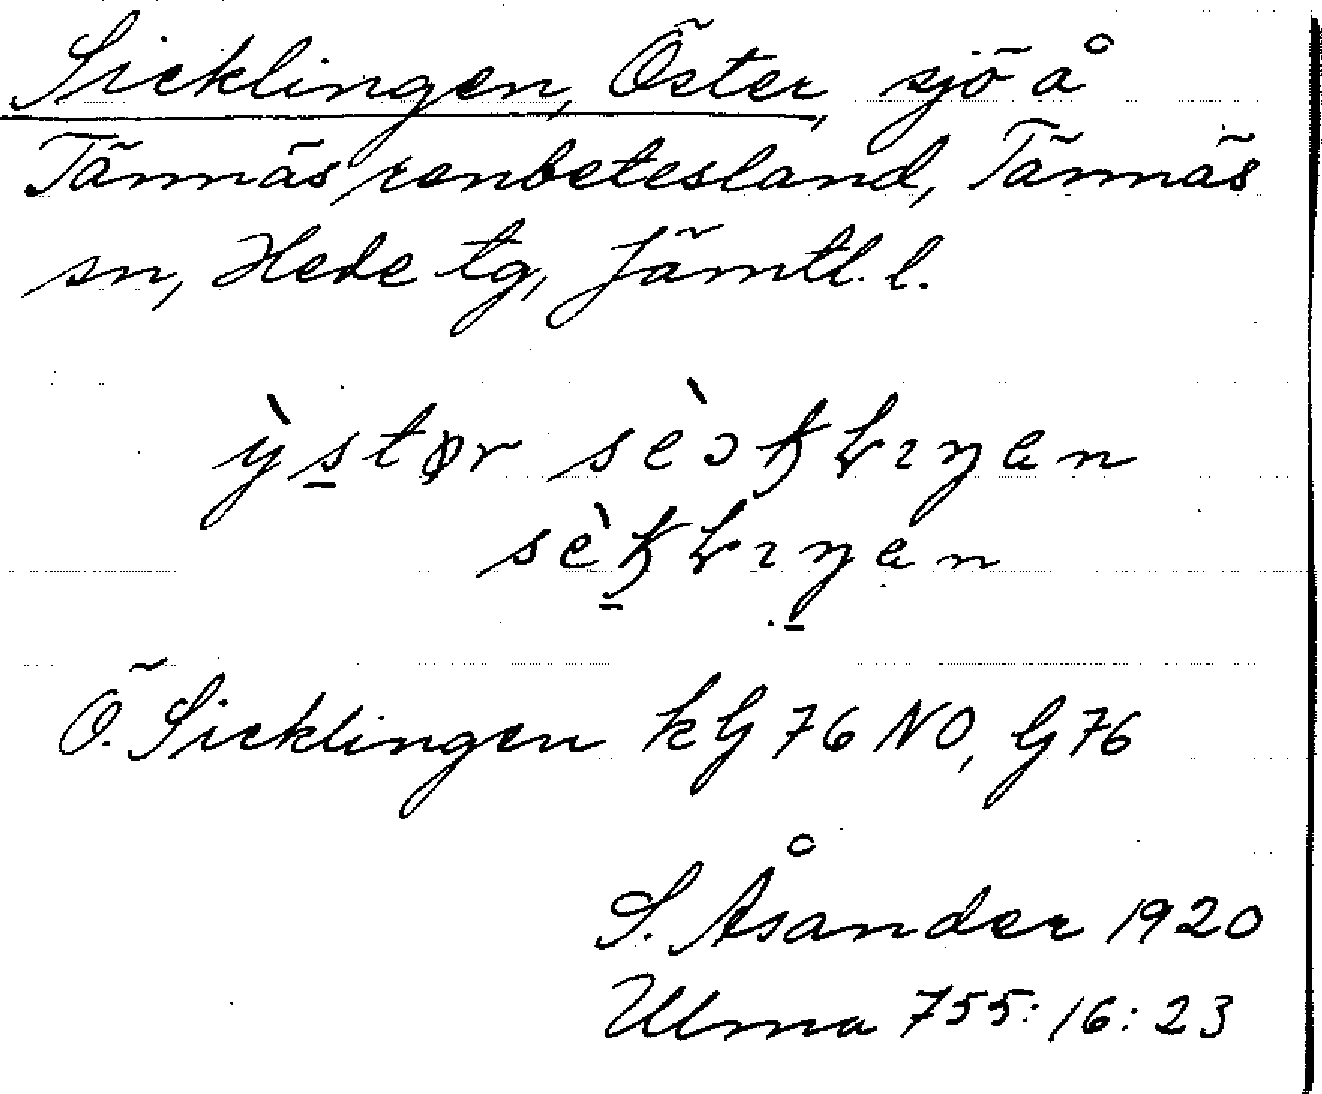 Sicklingen, Öster, sjö å
Tännäs renbetesland, Tännäs
sn, Hede tg, Jämtl. l.
Ö. Sicklingen kG 76 NO, G 76
S. Åsander 1920
Ulma 755:16:23